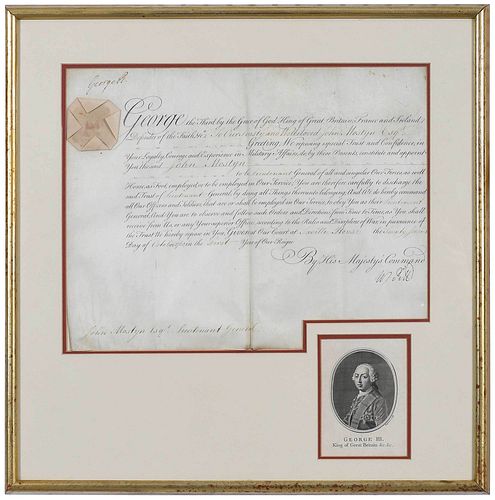 George R
George the Third by the Grace of God King of Great Britain France and Ireland
Defender of the Faith &c To Our Trusty and Wellbeloved John Mostyn Esqr
Greeting. We reposing especial Trust and Confidence, in
Your Loyalty, Courage, and Experience in Military Affairs, do by these Presents, constitute and appoint
You the said John Mostyn
to be Lieutenant General of all and singular Our Forces, as well
Horse, as Foot, employed, or to be employed in Our Service; You are therefore carefully to discharge the
said Trust of Lieutenant General, by doing all Things thereunto belonging, And We do hereby command
all Our Officers and Soldiers, that are or shall be employed in Our Service, to obey You as their Lieutenant
General, And You are to observe and follow such Orders and Directions from Time to Time, as You shall
receive from Us, or any Your superior Officer, according to the Rules and Discipline of War, in pursuance of
the Trust We hereby repose in You. Given at Our Court at Saville House the
Day of in the First Year of Our Reign
By His Majesty's Command
John Mostyn Esqr. Lieutenant General
GEORGE III.
King of Great Britain &c. &c.